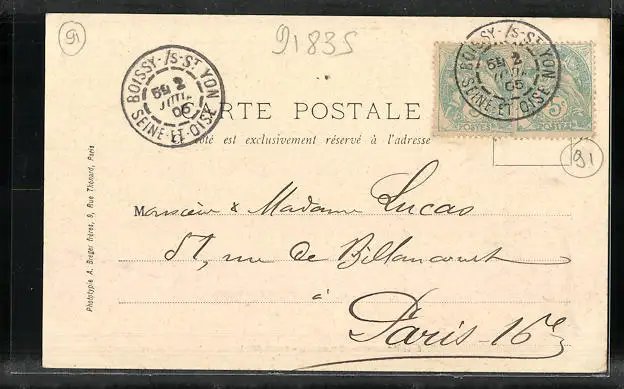 91
91835
BOISSY-/S-ST YON
5E 2
JUIL
05
SEINE-ET-OISE
BOISSY-/S-ST YON
5E 2
JUIL
05
SEINE-ET-OISE
POSTES
5
CARTE POSTALE
Ce côté est exclusivement réservé à l'adresse
91
Monsieur & Madame Lucas
51, rue de Billancourt
à
Paris-16e
Phototypie A. Breger frères, 9, Rue Thénard, Paris